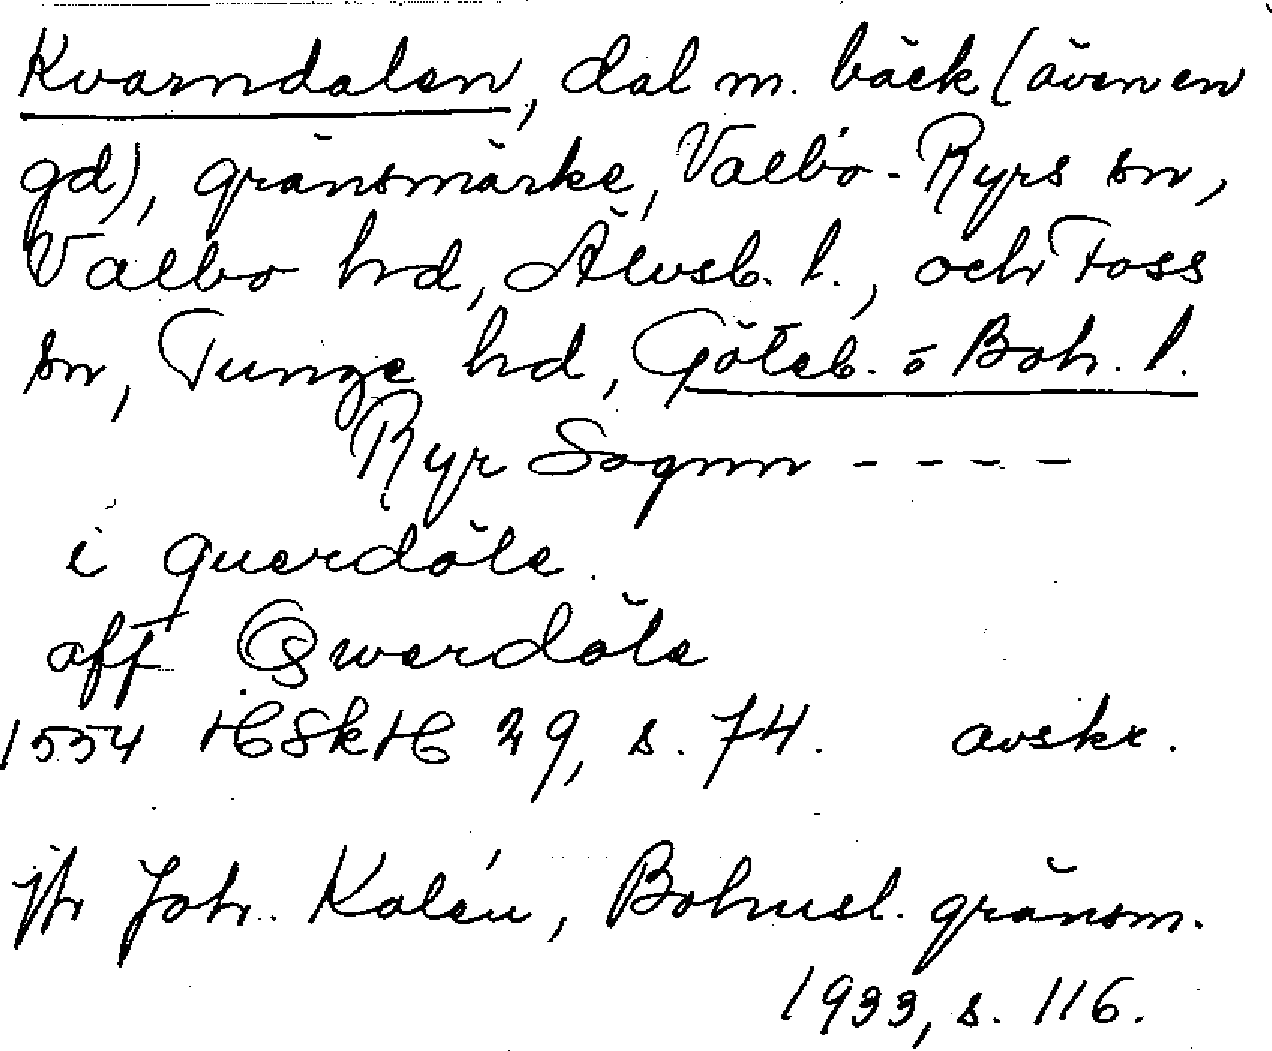 Kvarndalen, dal m. bäck (även en
gd), gränsmärke, Valbo-Ryrs sn,
Valbo hrd, Älvsb. l., och Foss
sn, Tunge hrd, Göteb. o Boh. l.
Ryr Sognn - - - -
i querdöle.
aff Qwerdöle
1554 HSkH 29, s. 74. avskr.
jfr Joh. Kalén, Bohusl. gränsm.
1933, s. 116.